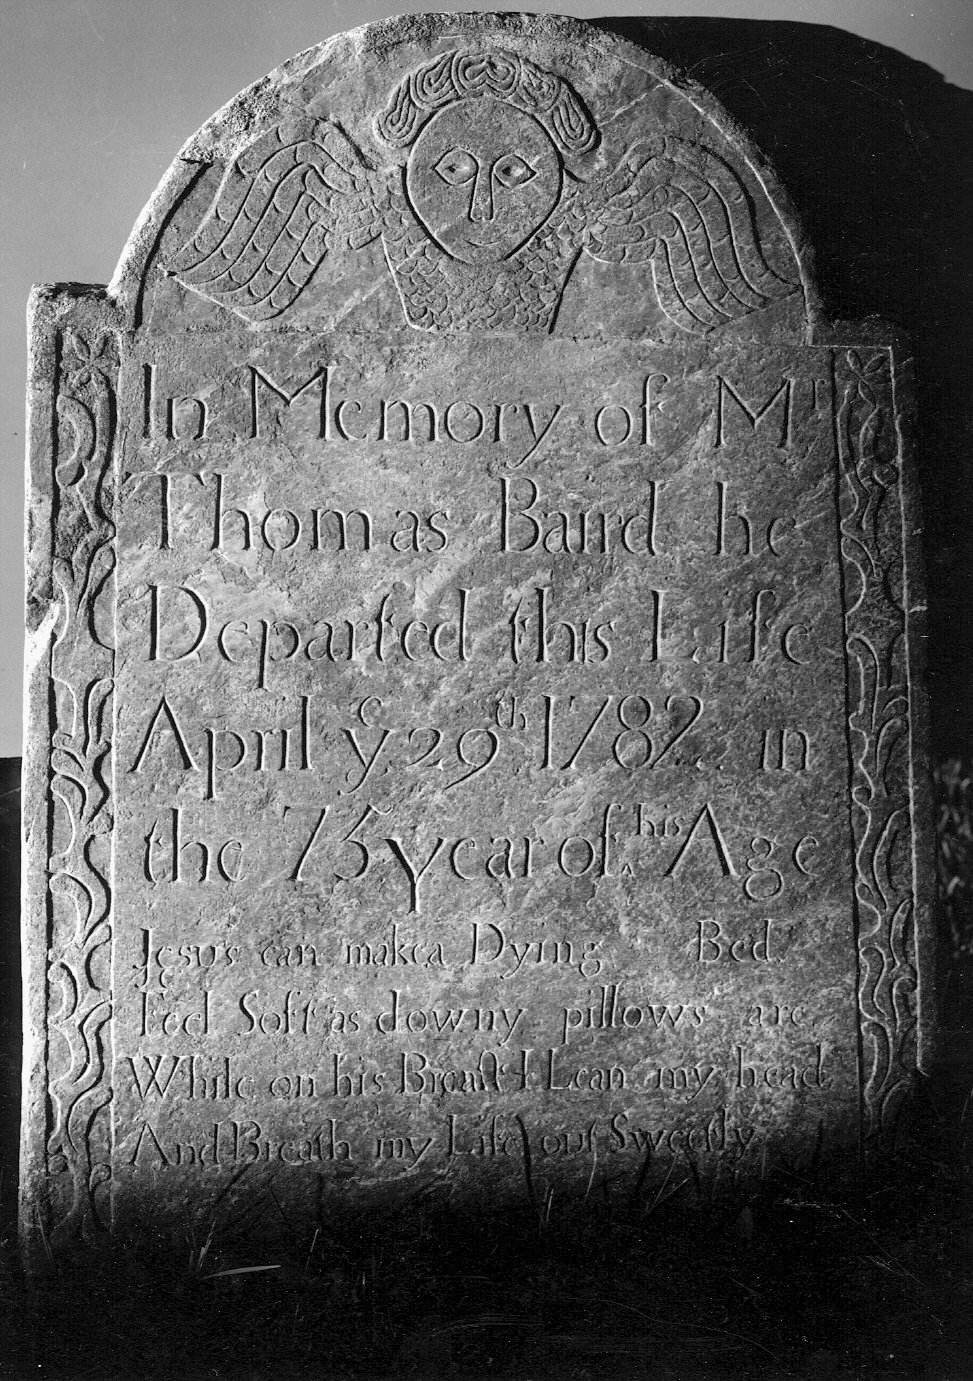 In Memory of Mr
Thomas Baird he
Departed this Life
April ye 29th 1782 in
the 75 year of his Age
Jesus can make a Dying Bed
Feel Soft as downy pillows are
While on his Breast I Lean my head
And Breath my Life out Sweetly